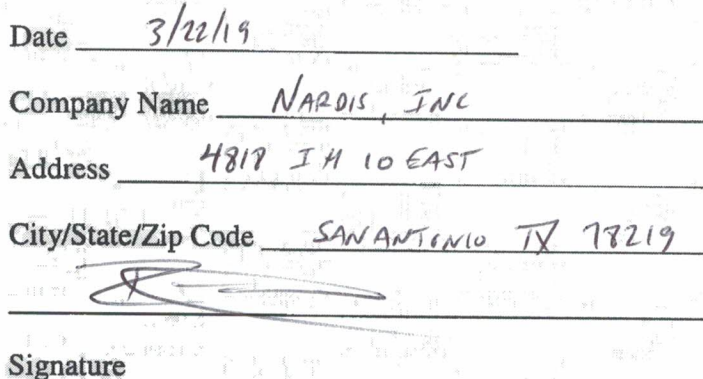 Date 3/22/19
Company Name NARDIS, INC
Address 4818 IH 10 EAST
City/State/Zip Code SAN ANTONIO TX 78219
Signature